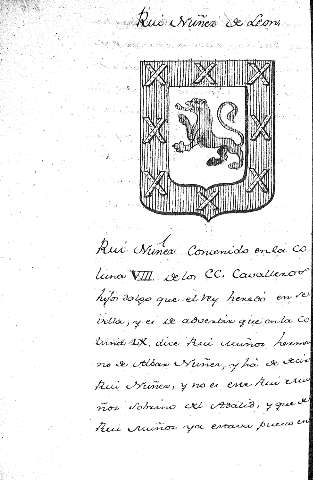 Rui Nuñez de Leon
Rui Nuñez Contenido en la Co
luna VIII de los CC. Cavalleros
hijos dalgo que el Rey heredó en Se
villa, y es de advertir que en la Co
luna LX. dice Rui Muñoz herma
no de Alvar Nuñez, y há de decir
Rui Nuñez, y no es este Rui Mu
ñoz sobrino del Adalid, y que el
Rui Muñoz ya estava puesto en